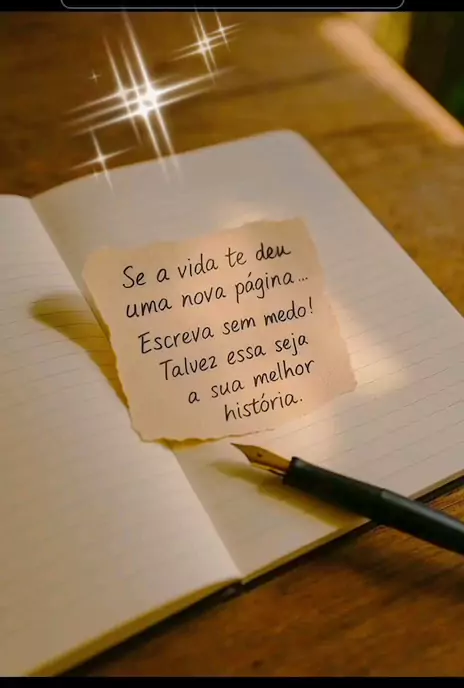 Se a vida te deu
uma nova página...
Escreva sem medo!
Talvez essa seja
a sua melhor
história.